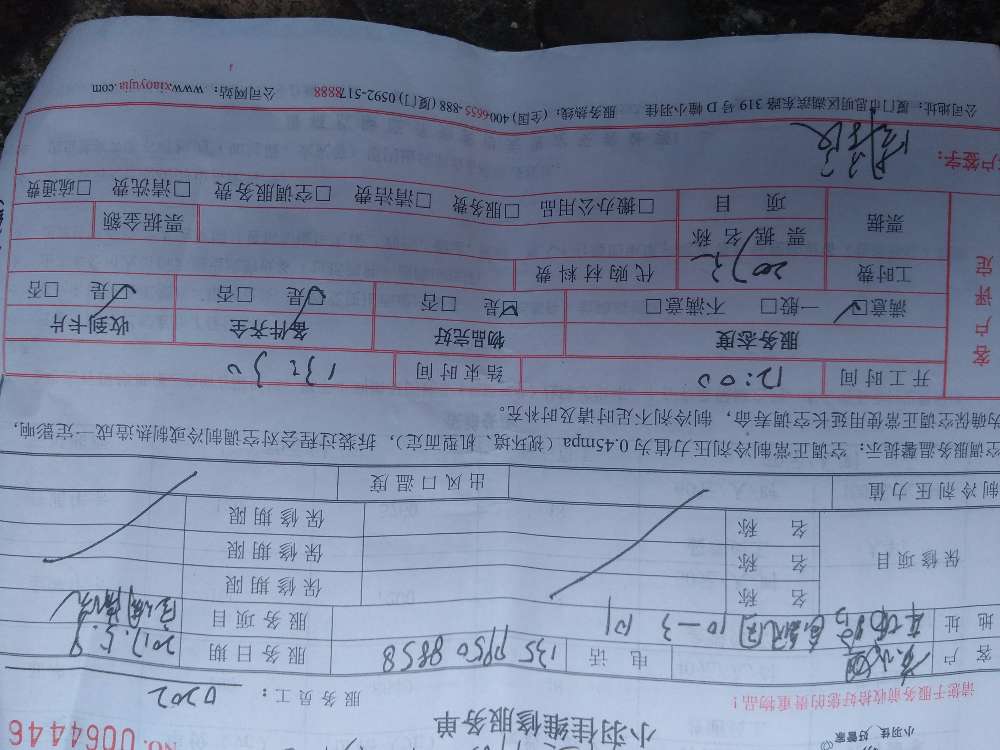 小羽佳 好管家
小羽佳维修服务单
No.0064446
请您于服务前收拾好您的贵重物品！
服务员工： 0202
客户 电话 135 9850 8858 服务日期 2017.5.9
地址 10-3 服务项目
保修项目 名称 保修期限
名称 保修期限
名称 保修期限
制冷剂压力值 出风口温度
空调服务温馨提示：空调正常制冷剂压力值为0.45mpa（视环境、机型而定），拆装过程会对空调制冷或制热造成一定影响，
为确保空调正常使用延长空调寿命，制冷剂不足时请及时补充。
客户评定
开工时间 12:00 结束时间 13:30
服务态度 物品完好 备件齐全 收到卡片
☑满意 一般□ 不满意□ ☑是 □否 ☑是 □否 ☑是 □否
工时费 200元 代购材料费
票据 票据名称 票据金额
项目 □搬办公用品 □服务费 □清洁费 □空调服务费 □清洗费 □疏通费
客户签字：
公司地址：厦门市思明区湖滨东路319号D幢小羽佳 服务热线：（全国）4006655-888（厦门）0592-5178888 公司网站：www.xiaoyujia.com